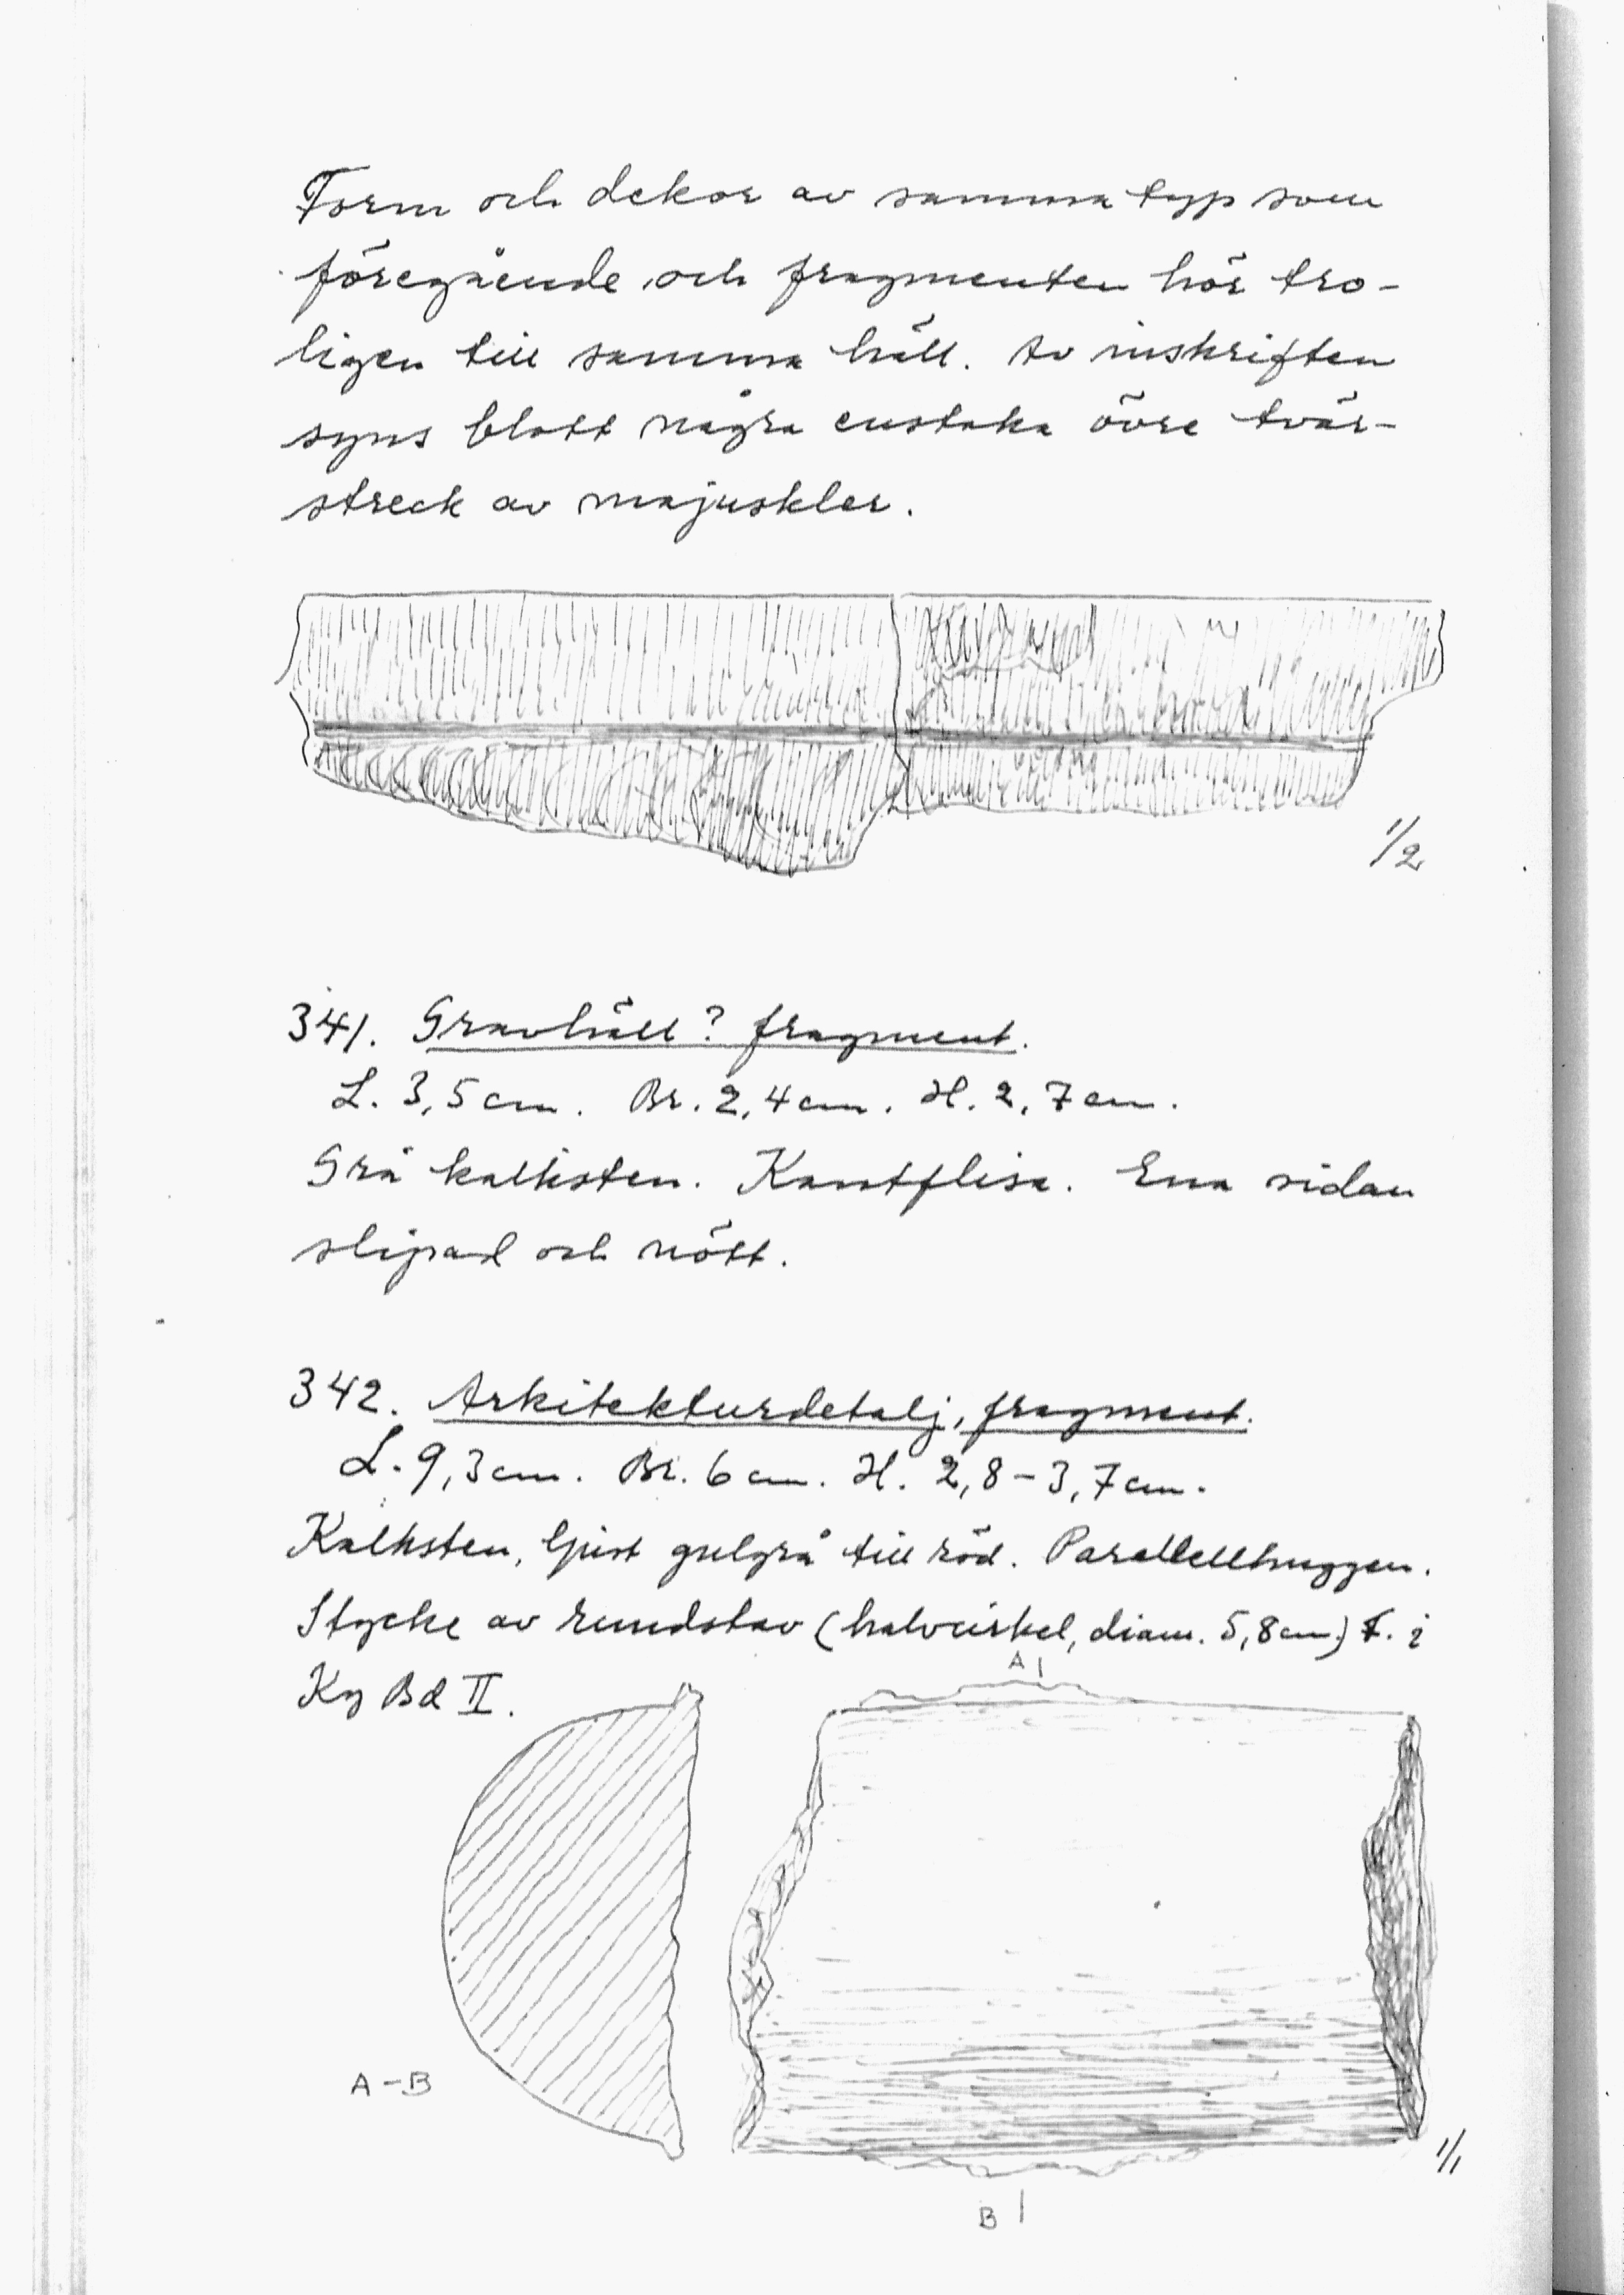 Form och dekor av samma typ som
föregående och fragmenten hör tro-
ligen till samma häll. Av inskriften
syns blott några enstaka övre tvär-
streck av majuskler.
1/2
341. Gravhäll? fragment.
L. 3,5 cm. Br. 2,4 cm. H. 2,7 cm.
Grå kalksten. Kantflisa. Ena sidan
slipad och nött.
342. Arkitekturdetalj, fragment.
L. 9,3 cm. Br. 6 cm. H. 2,8-3,7 cm.
Kalksten, ljust gulgrå till röd. Parallellhuggen.
Stycke av rundstav (halvcirkel, diam. 5,8 cm.) F. i
A
Kg Bd II.
A-B
1/1
B